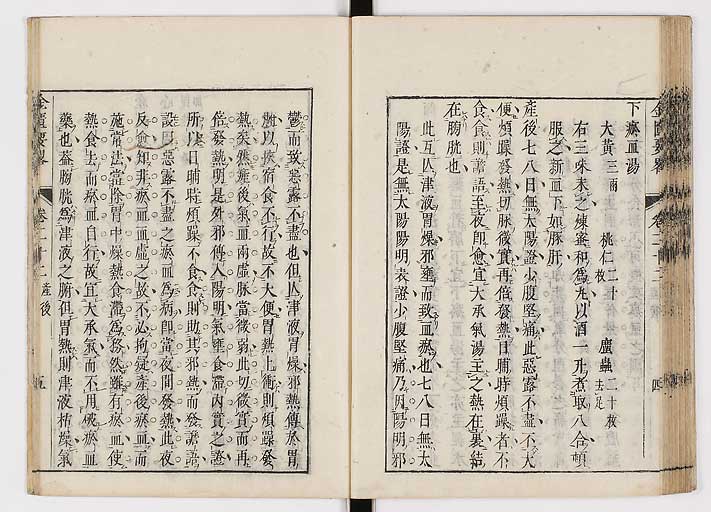 下瘀血湯
大黃三兩 桃仁二十枚 䗪蟲二十枚去足
右三味末之煉蜜和為丸以酒一升煮取八合頓
服之新血下如豚肝
產後七八日無太陽證少腹堅痛此惡露不盡不大
便煩躁發熱切脉微實再倍發熱日晡時煩躁者不
食食則譫語至夜即愈宜大承氣湯主之熱在裏結
在膀胱也
此互亾津液胃燥邪壅而致血瘀也七八日無太
陽證是無太陽陽明表證少腹堅痛乃因陽明邪
金匱要畧 卷二十二 產後 四
鬱而致惡露不盡也但亾津液胃燥邪熱傳於胃
腑以挾宿食不行故不大便胃熱上衝則煩躁發
熱矣然產後氣血兩虛脉當微弱此切微實而再
倍發熱明是外邪傳入陽明氣壅食滯內實之證
所以日晡時煩躁不食食則助其邪熱而發譫語
設因惡露不盡之瘀血為病即當夜間發熱此夜
反愈知非瘀血血虛之故不必拘疑產後瘀血而
施常法當除胃中燥熱食滯為務然雖有瘀血使
熱食去而瘀血自行故宜大承氣而不用破瘀血
藥也蓋膀胱為津液之腑但胃熱則津液枯燥氣
金匱要畧 卷二十二 產後 五